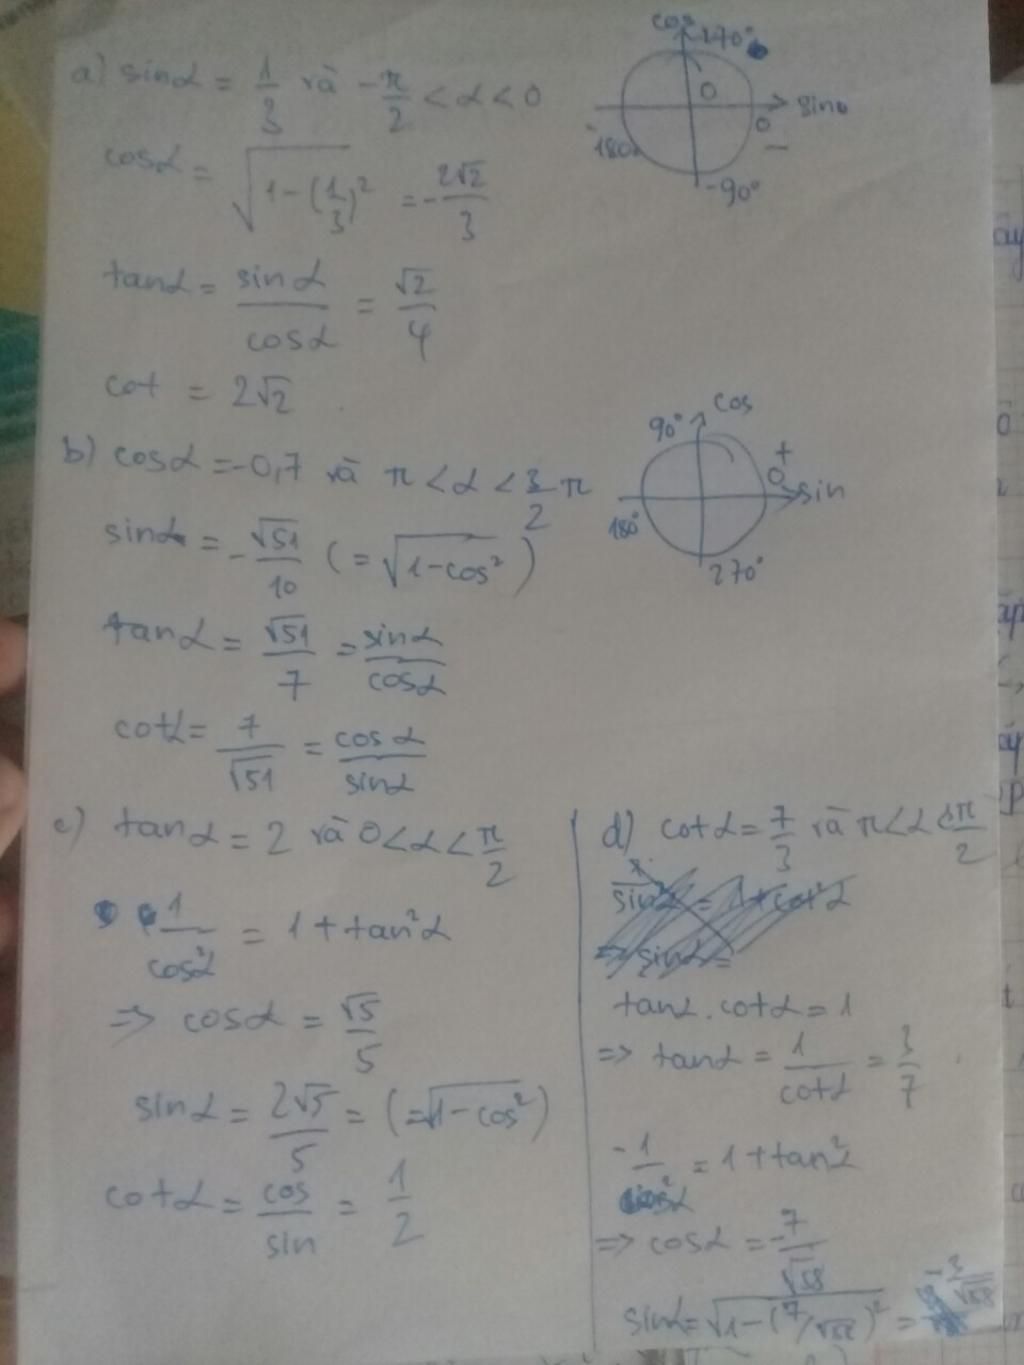 a) sinα = 1/3 và -π/2 < α < 0
cosα = √(1-(1/3)²) = -2√2/3
tanα = sinα/cosα = √2/4
cot = 2√2
cos
270°
0
sin
0
180
-90°
b) cosα = -0,7 và π < α < 3/2 π
sinα = -√51/10 (= √(1-cos²))
tanα = √51/7 = sinα/cosα
cotα = 7/√51 = cosα/sinα
cos
90°
+
0
sin
180°
270°
c) tanα = 2 và 0 < α < π/2
1/cos²α = 1 + tan²α
=> cosα = √5/5
sinα = 2√5/5 = (= √(1-cos²))
cotα = cos/sin = 1/2
d) cotα = 7/3 và π < α < 3π/2
tanα . cotα = 1
=> tanα = 1/cotα = 3/7
-1/cos²α = 1 + tan²α
=> cosα = -7/√58
sinα = √(1-(7/√58)²) = -3/√58